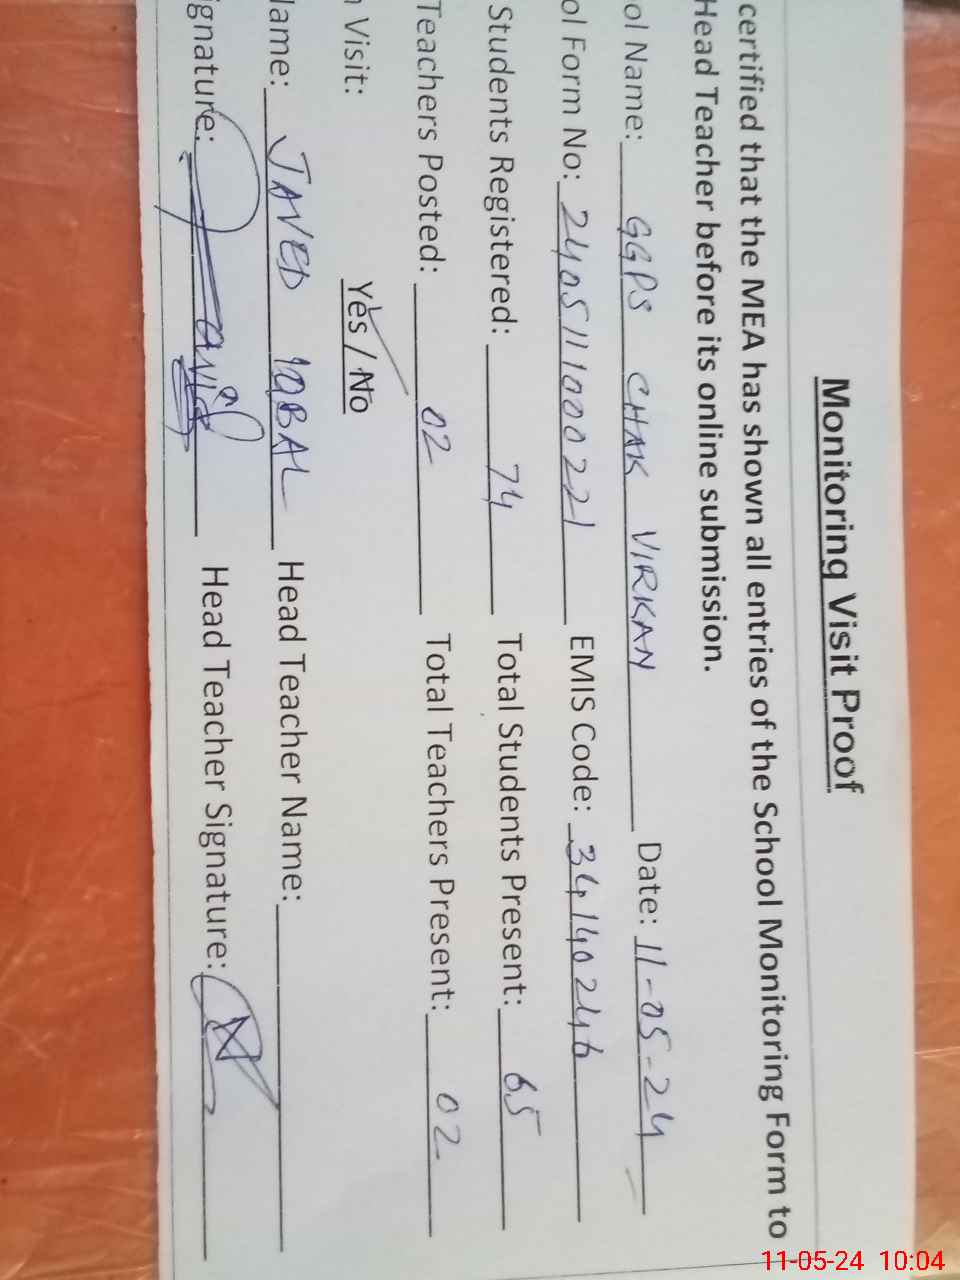 Monitoring Visit Proof
certified that the MEA has shown all entries of the School Monitoring Form to
Head Teacher before its online submission.
ol Name: GGPS CHAK VIRKAN Date: 11-05-24
ol Form No: 240511100221 EMIS Code: 34140246
Students Registered: 74 Total Students Present: 65
Teachers Posted: 02 Total Teachers Present: 02
n Visit: Yes / No
Name: JAVED IQBAL Head Teacher Name:
ignature: Javed Head Teacher Signature:
11-05-24 10:04